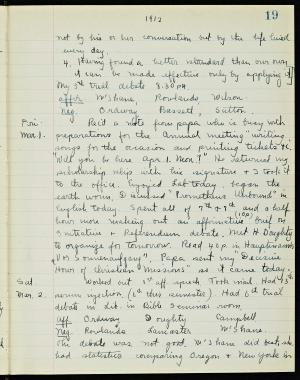 1912
19
not by his or her conversation but by the life lived
every day.
4. Having found a better standard than our own
it can be made effective only by applying it
My 5th trial debate 3.30 P.M.
affir W'Shane, Rowlands, Wilson
neg. Ordway Bassett, Sutton
Fri. Rec'd a note from papa, who is busy with
Mar. 1. preparations for the "Annual meeting" writing
songs for the occasion and printing tickets &c.
"Will you be here Apr. 1. Mon?" He returned my
scholarship slip with his signature & I took it
to the office. Enjoyed Lab today. began the
earth worm, Discussed
English today. Spent all of 7th & 8th and a half
hour more working out an affirmative brief of
Initiative & Referendum debate, Met H Doughty
to organize for tomorrow. Read 40 p in
Papa sent my "Decisive
Hour of Christian Missions" as it came today.
Sat Worked out 1st aff speech. Took mial. Had 13th
Mar. 2. serum injection (6th this semester) Had 6th trial
debate in Lib. in Bible Seminar room.
aff Ordway Doughty Campbell
neg Rowlands Lancaster W'Shane.
The debate was not good. W'Shane did best, she
had statistics comparing Oregon & New York in